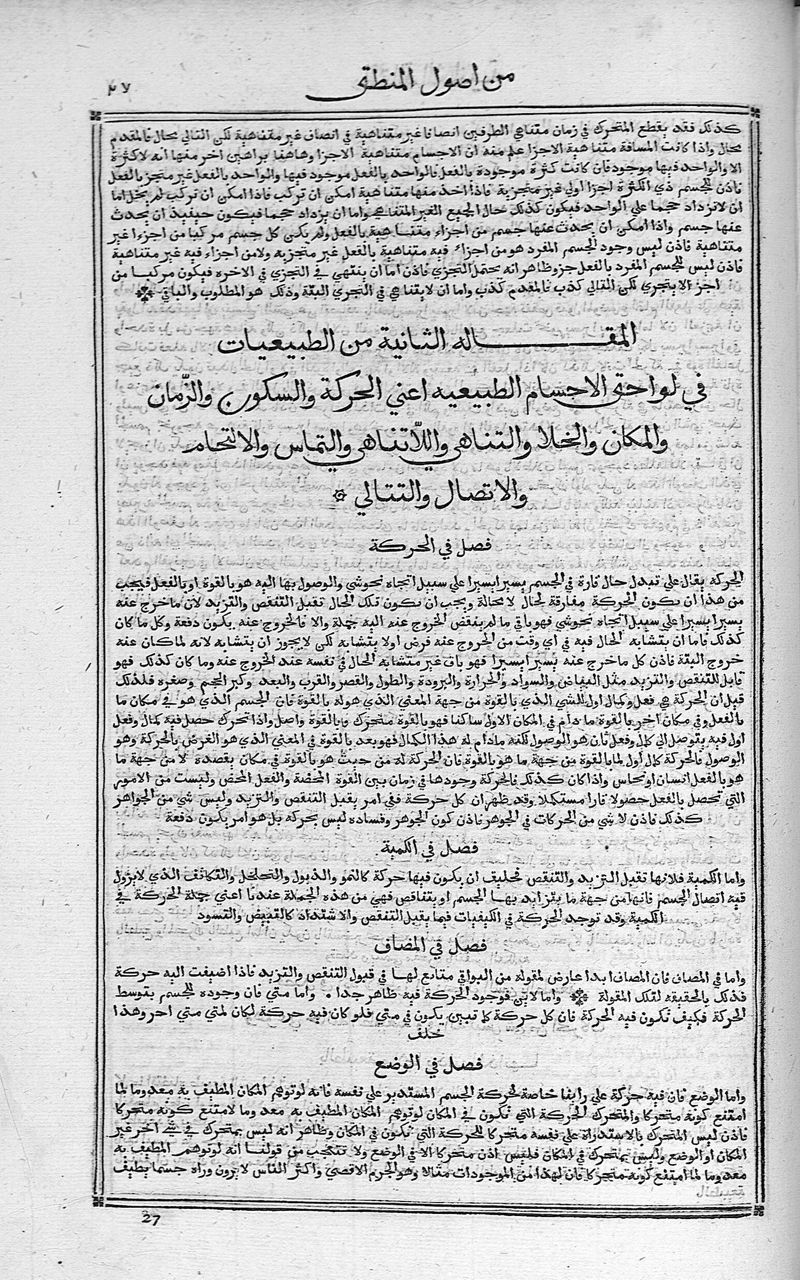 من اصول المنطق
٢٧
كذلك فقد يقطع المتحرك في زمان متناهي الطرفين انصافا غير متناهية في انصاف غير متناهية لكن التالي محال فالمقدم
محال واذا كانت المسافة متناهية الاجزا علم منه ان الاجسام متناهية الاجزا وهاهنا براهين اخر منها انه لا كثرة
الا والواحد فيها موجود فان كانت كثرة موجودة بالفعل فالواحد بالفعل موجود فيها والواحد بالفعل غير متجز بالفعل
فاذن للجسم ذي الكثرة اجزا اولي غير متجزية فاذا اخذ منها متناهية امكن ان تركب فاذا امكن ان تركب لم يخل اما
ان لا تزداد حجما علي الواحد فيكون كذلك حال الجميع الغير المتناهي واما ان يزداد حجما فيكون حينيذ ان يحدث
عنها جسم واذا امكن ان يحدث عنها جسم من اجزاء متناهية بالفعل ولم يكن كل جسم مركبا من اجزءا غير
متناهية فاذن ليس وجود الجسم المفرد هو من اجزاء فيه متناهية بالفعل غير متجزية ولا من اجزاء فيه غير متناهية
فاذن ليس للجسم المفرد بالفعل جز وظاهر انه يحتمل التجزي فاذن اما ان ينتهي في التجزي في الاخره فيكون مركبا من
اجزا لا يتجزي لكن التالي كذب فالمقدم كذب واما ان لا يتناهي في التجزي البتة وذلك هو المطلوب والباقي
المقاله الثانية من الطبيعيات
في لواحق الاجسام الطبيعيه اعني الحركة والسكون والزّمان
والمكان والخلا والتناهي واللاّتناهي والتماس والالتحام
والاتصال والتتالي
فصل في الحركة
الحركة يقال علي تبدل حال قارة في الجسم يسيرا يسيرا علي سبيل اتجاه نحو شي والوصول بها اليه هو بالقوة او بالفعل فيجب
من هذا ان يكون الحركة مفارقة لحال لا محالة ويجب ان يكون تلك الحال تقبل التنقص والتزيد لان ما خرج عنه
يسيرا يسيرا علي سبيل اتجاه نحو شي فهو باق ما لم ينقض الخروج عنه اليه جملة والا فالخروج عنه يكون دفعة وكل ما كان
كذلك فاما ان يتشابه الحال فيه في اي وقت من الخروج عنه فرض اولا يتشابه لكن لا يجوز ان يتشابه لانه لما كان عنه
خروج البتة فاذن كل ما خرج عنه يسيرا يسيرا فهو باق غير متشابه الحال في نفسه عند الخروج عنه وما كان كذلك فهو
قابل للتنقص والتزيد مثل البياض والسواد والحرارة والبرودة والطول والقصر والقرب والبعد وكبر الحجم وصغره فلذلك
قيل ان الحركة هي فعل وكمال اول للشي الذي بالقوة من جهة المعني الذي هو له بالقوة فان الجسم الذي هو في مكان ما
بالفعل وفي مكان آخر بالقوة ما دام في المكان الاول ساكنا فهو بالقوة متحرك وبالقوة واصل واذا تحرك حصل فيه كمال وفعل
اول فيه يتوصل الي كمال وفعل ثان هو الوصول لكنه ما دام له هذا الكمال فهو بعد بالقوة في المعني الذي هو الغرض بالحركة وهو
الوصول فالحركة كمال اول لما بالقوة من جهة ما هو بالقوة فان الحركة له من حيث هو بالقوة في مكان يقصده لا من جهة ما
هو بالفعل انسان او نحاس واذا كان كذلك فالحركة وجودها في زمان بين القوة المحضة والفعل المحض وليست من الامور
التي تحصل بالفعل حصولا قارا مستكملا وقد ظهر ان كل حركة ففي امر يقبل التنقص والتزيد وليس شي من الجواهر
كذلك فاذن لا شي من الحركات في الجوهر فاذن كون الجوهر وفساده ليس بحركه بل هو امر يكون دفعة
فصل في الكمية
واما الكمية فلانها تقبل التزيد والتنقص فخليق ان يكون فيها حركة كالنمو والذبول والتخلخل والتكاثف الذي لا يزول
فيه اتصال الجسم فانها من جهة ما يتزايد بها الجسم او يتناقص فهي من هذه الجملة عندنا اعني جملة الحركة في
الكمية وقد توجد الحركة في الكيفيات فيما يقبل التنقص والاشتداد كالتبيض والتسود
فصل في المضاف
واما في المضاف فان المضاف ابدا عارض لمقولة من البواقي متابع لها في قبول التنقص والتزيد فاذا اضيفت اليه حركة
فذلك بالحقيقه لتلك المقولة واما الاين فوجود الحركة فيه ظاهر جدا . واما متي فان وجوده للجسم بتوسط
الحركة فكيف تكون فيه الحركة فان كل حركة كما تبين يكون في متي فلو كان فيه حركة لكان لمتي متي اخر وهذا
خلف
فصل في الوضع
واما الوضع فان فيه حركة علي راينا خاصة لحركة الجسم المستدير علي نفسه فانه لو توهم المكان المطيف به معدوما لما
امتنع كونه متحركا والمتحرك الحركة التي تكون في المكان لو توهم المكان المطيف به معدوما لامتنع كونه متحركا
فاذن ليس المتحرك بالاستدارة علي نفسه متحركا للحركة التي تكون في المكان وظاهر انه ليس بمتحرك في شي اخر غير
المكان او الوضع وليس بمتحرك في المكان فليس اذن متحركا الا في الوضع ولا تتعجب من قولنا انه لو توهم المطيف به
معدوما لما امتنع كونه متحركا فان لهذا من الموجودات مثالا وهو الجرم الاقصي واكثر الناس لا يرون وراه جسما يطيف
27